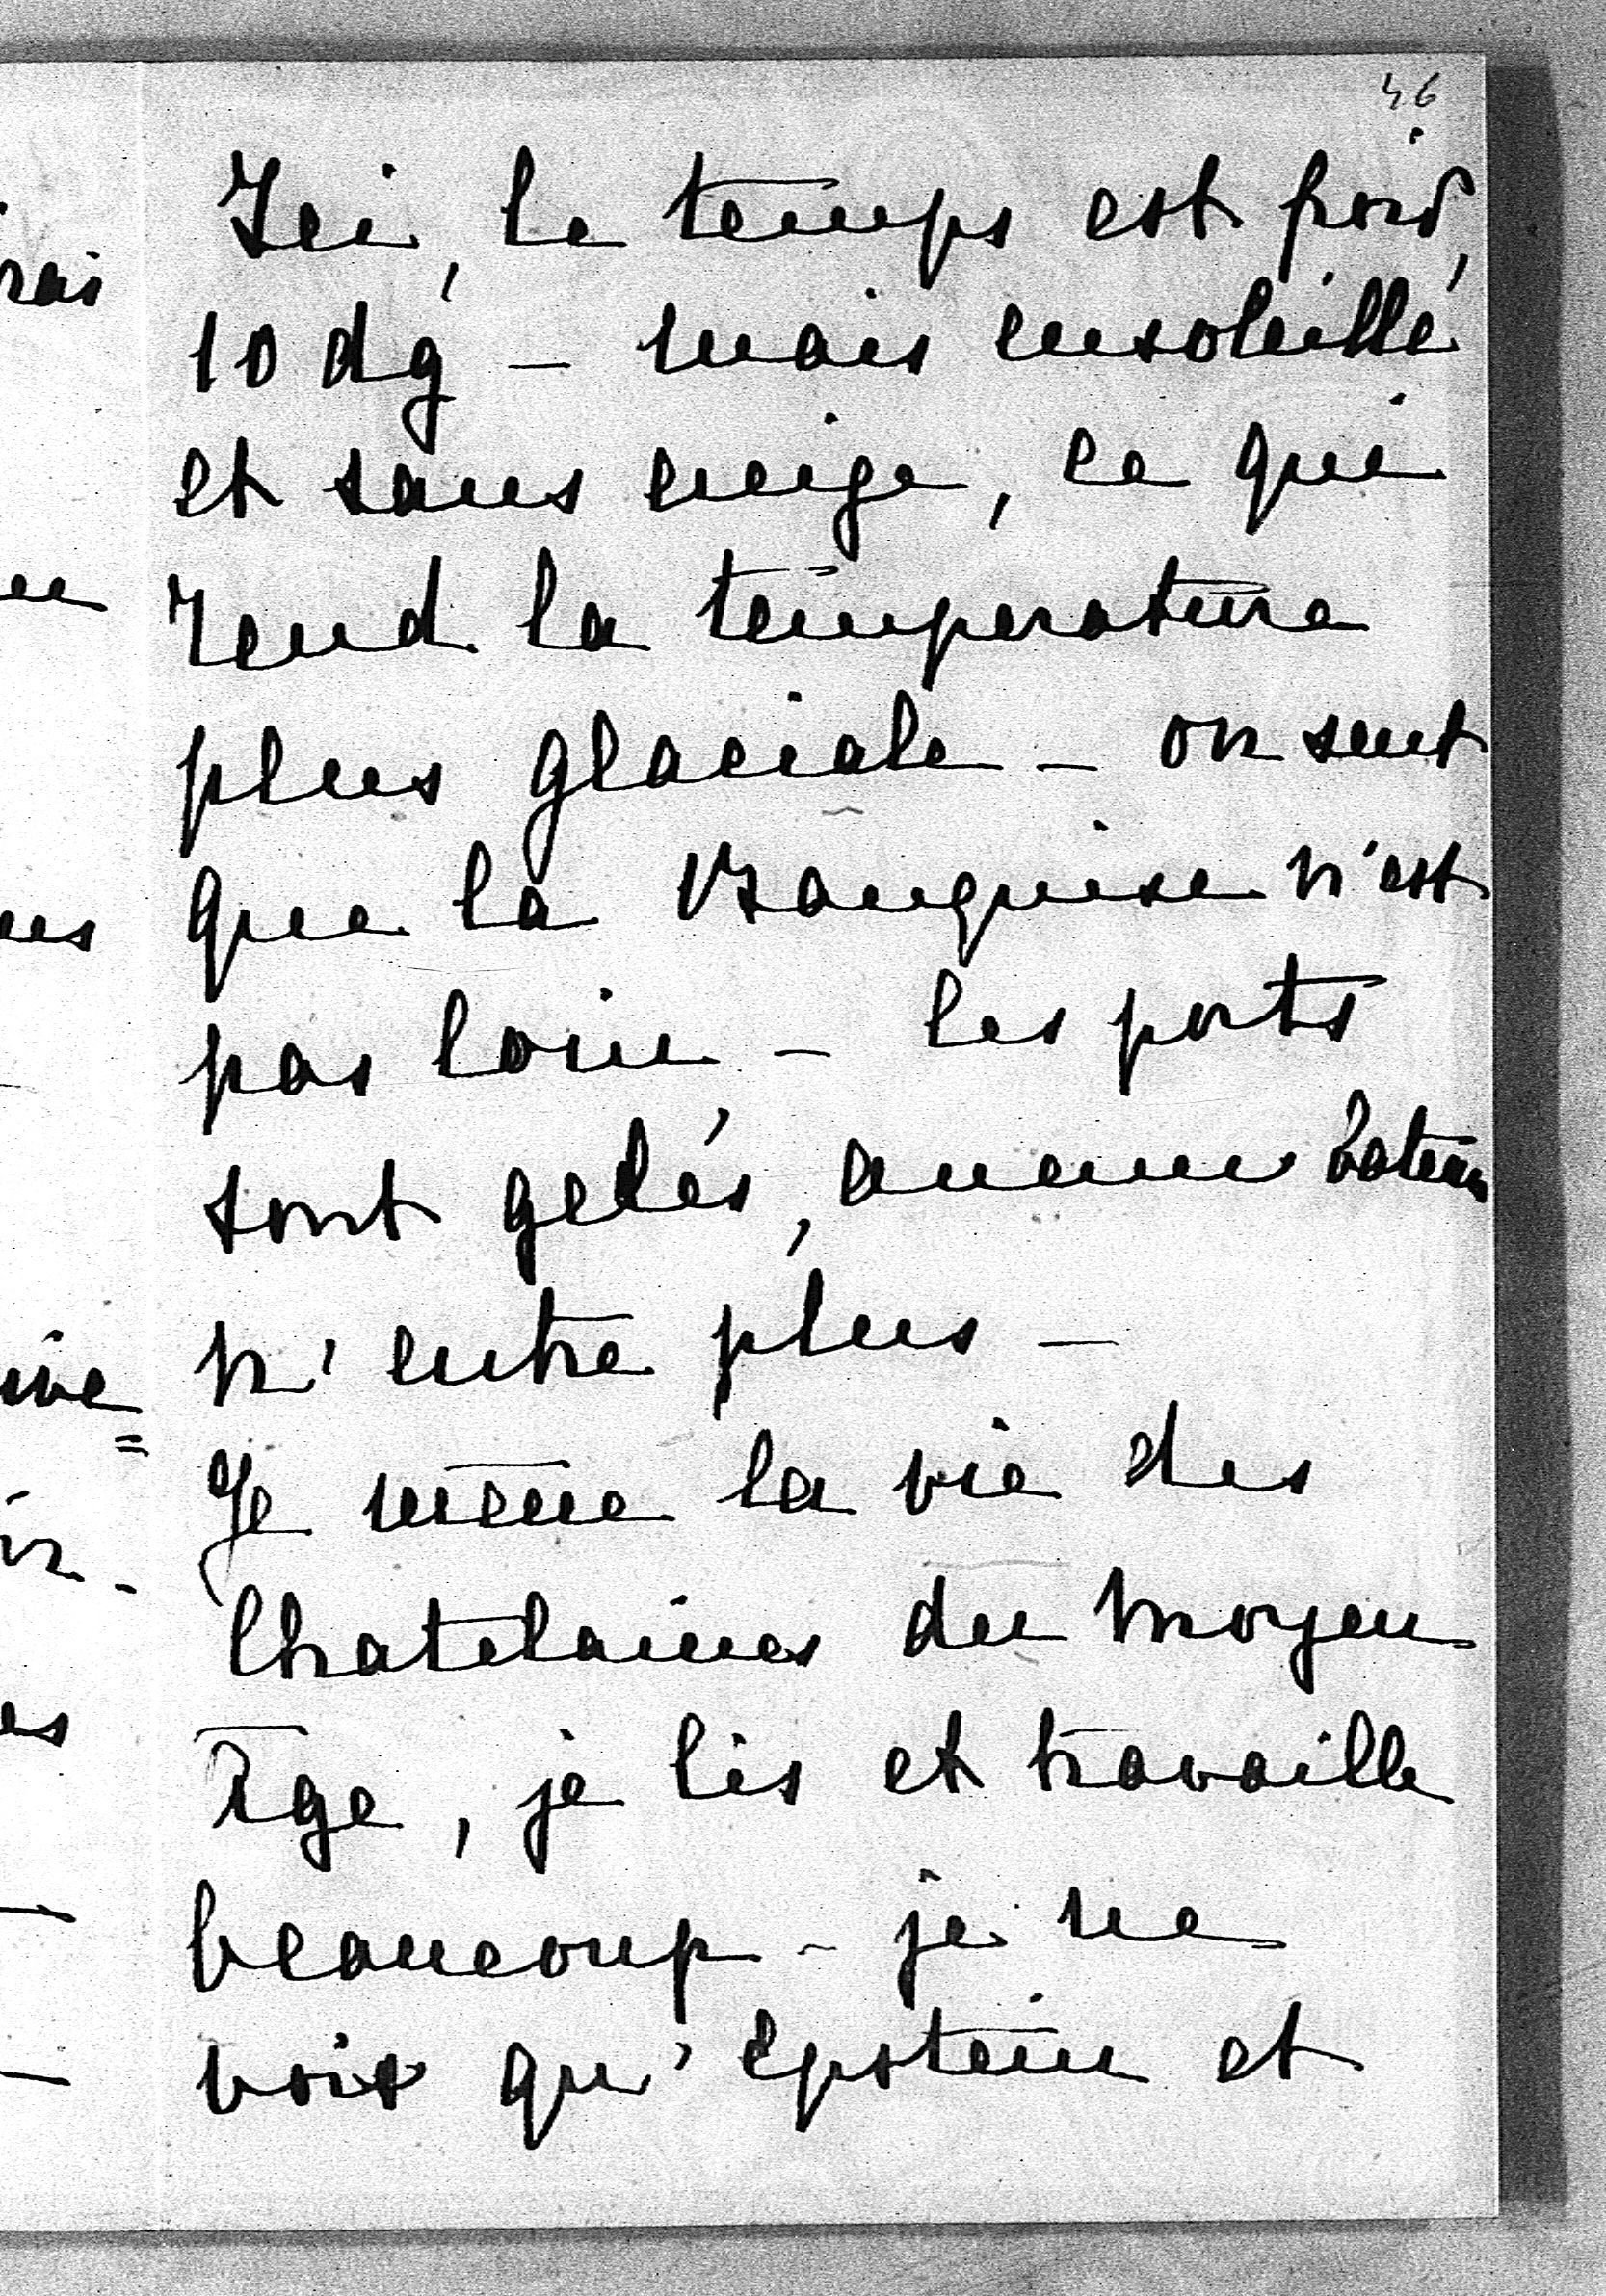 46
Ici, le temps est froid,
10 dg - mais ensoleillé
et sans neige, ce qui
rend la temperature
plus glaciale - on sent
que la Banquise n'est
pas loin - les ports
sont gelés, aucun bateau
n'entre plus -
Je mène la vie des
Chatelaines du Moyen
Âge, je lis et travaille
beaucoup - je ne
vois qu'Epstein et